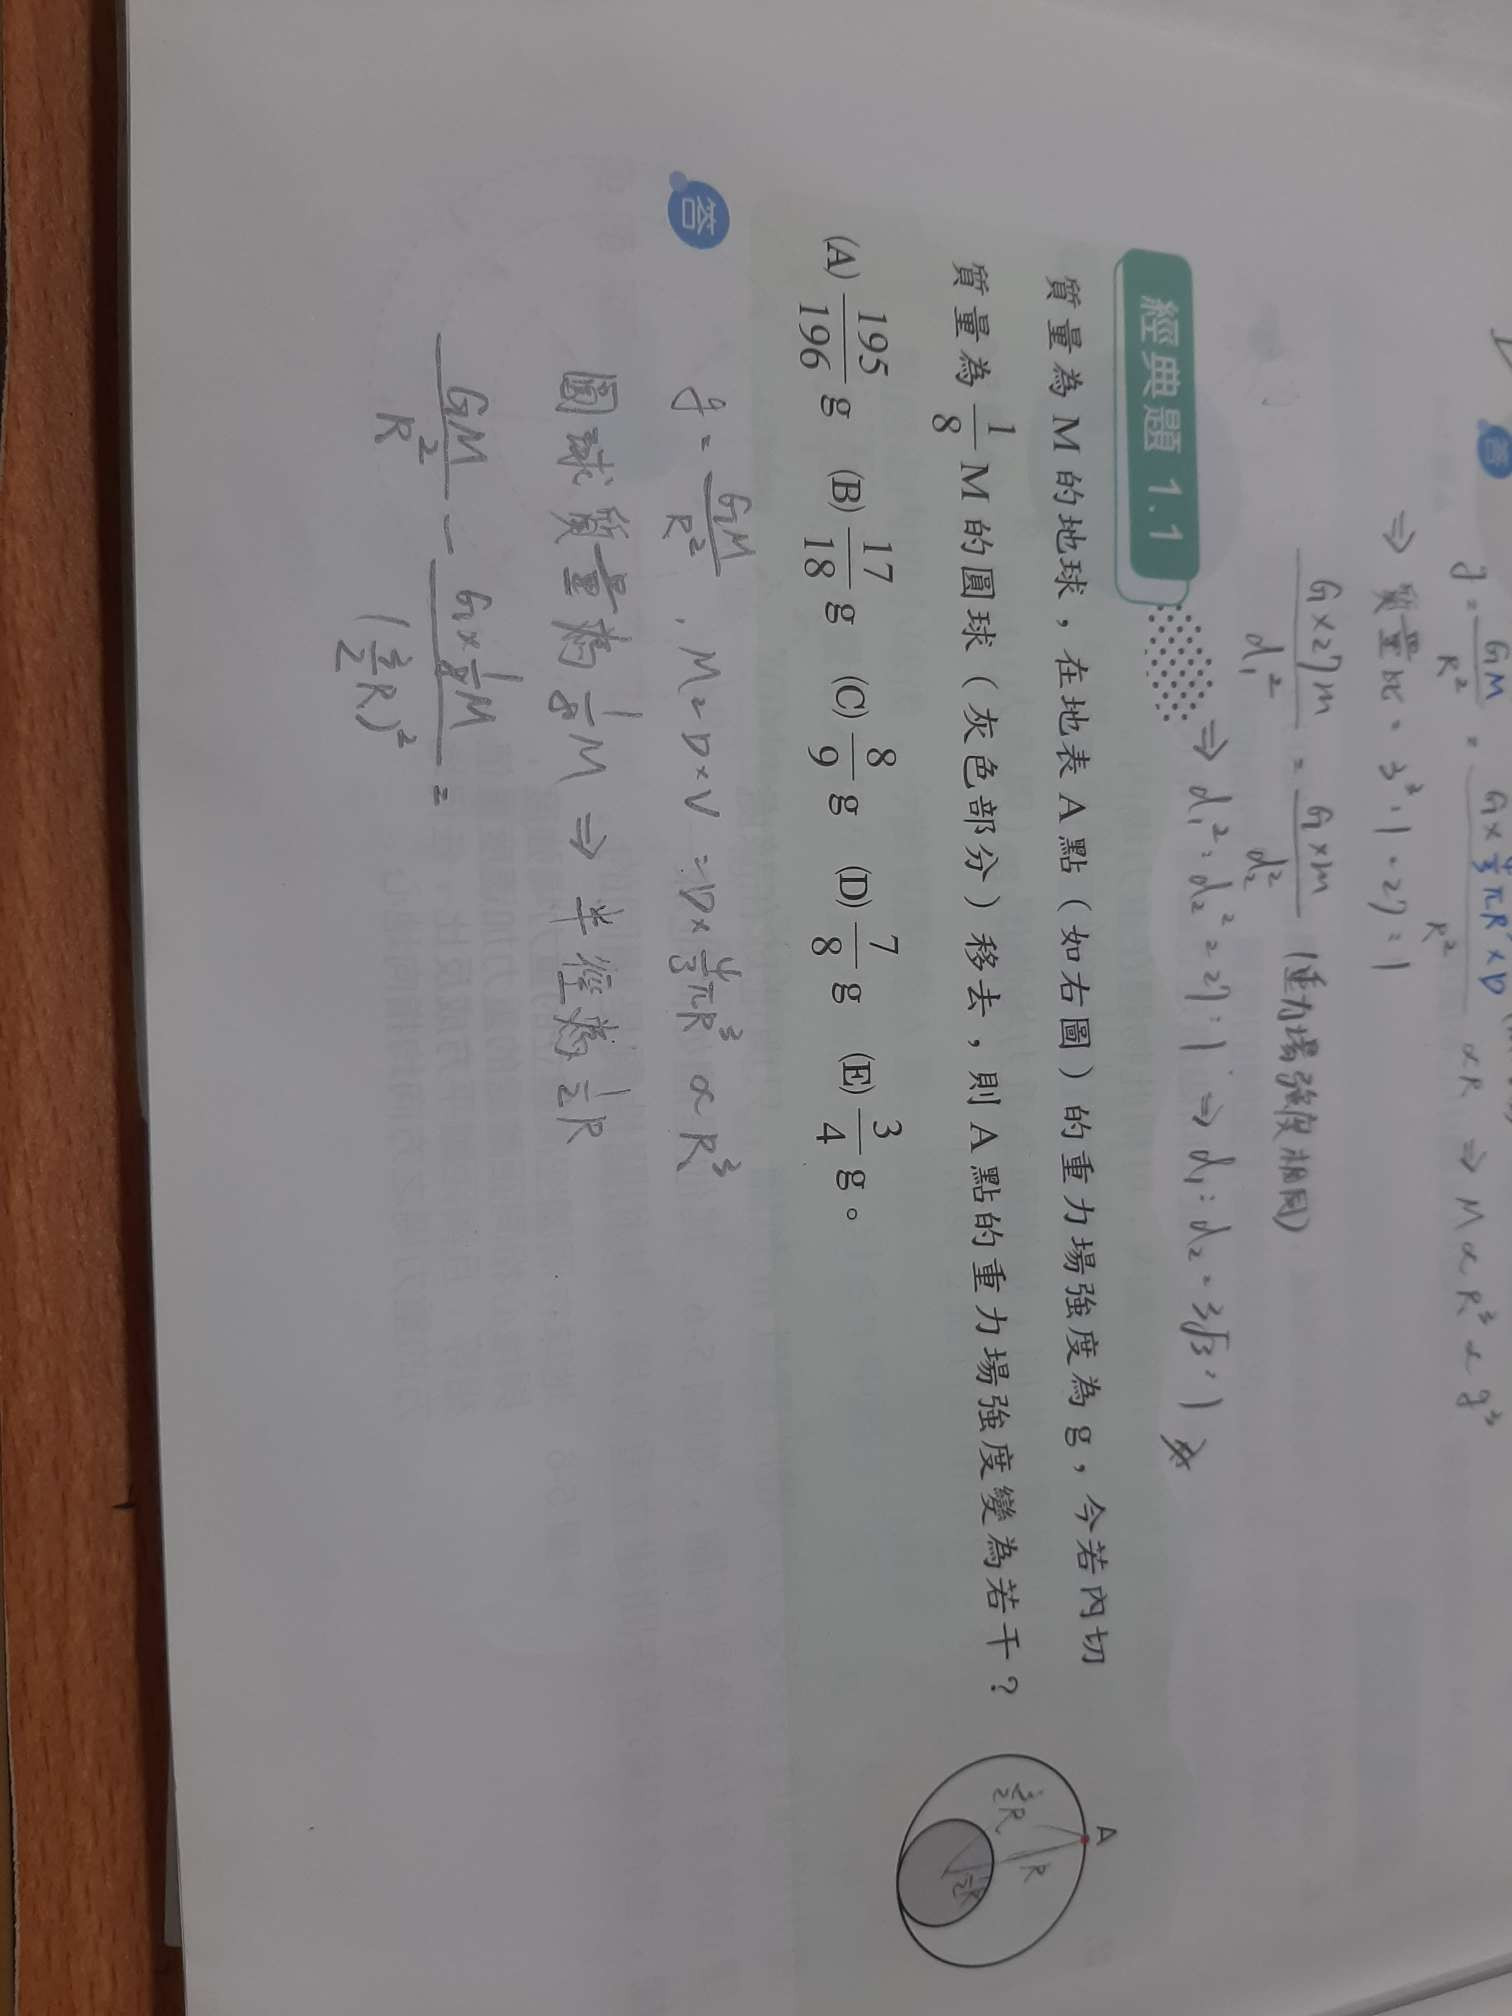 答
g = GM/R² = G×4/3πR³×D/R² ∝ R ⇒ M ∝ R³ ∝ g³
⇒ 質量比 = 3³:1 = 27:1
G×27m/d₁² = G×m/d₂² (重力場強度相同)
⇒ d₁²:d₂² = 27:1 ⇒ d₁:d₂ = 3√3:1
經典題 1.1
質量為 M 的地球，在地表 A 點（如右圖）的重力場強度為 g，今若內切
質量為 1/8 M 的圓球（灰色部分）移去，則 A 點的重力場強度變為若干？
(A) 195/196 g (B) 17/18 g (C) 8/9 g (D) 7/8 g (E) 3/4 g。
A
3/2R
R
1/2R
答
g = GM/R² , M = D×V = D×4/3πR³ ∝ R³
圓球質量為 1/8M ⇒ 半徑為 1/2R
GM/R² − G×1/8M/(3/2R)² =